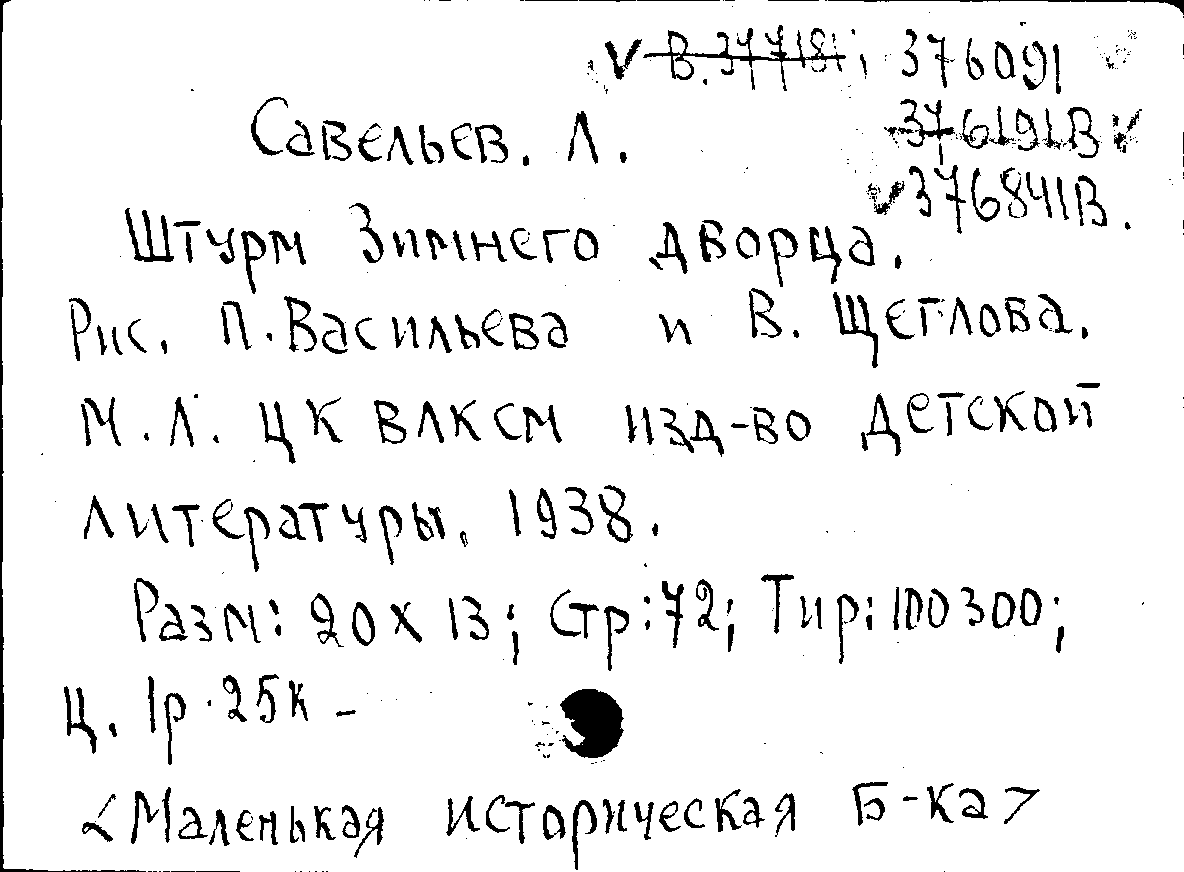 В. 377181; 376091
Савельев. Л. 376191В
376841В.
Штурм Зимнего дворца.
Рис. П. Васильева и В. Щеглова.
М. Л. ЦК ВЛКСМ изд-во детской
литературы, 1938.
Разм: 20 х 13; Стр: 72; Тир: 100300;
Ц. 1р. 25к -
<Маленькая историческая Б-ка>